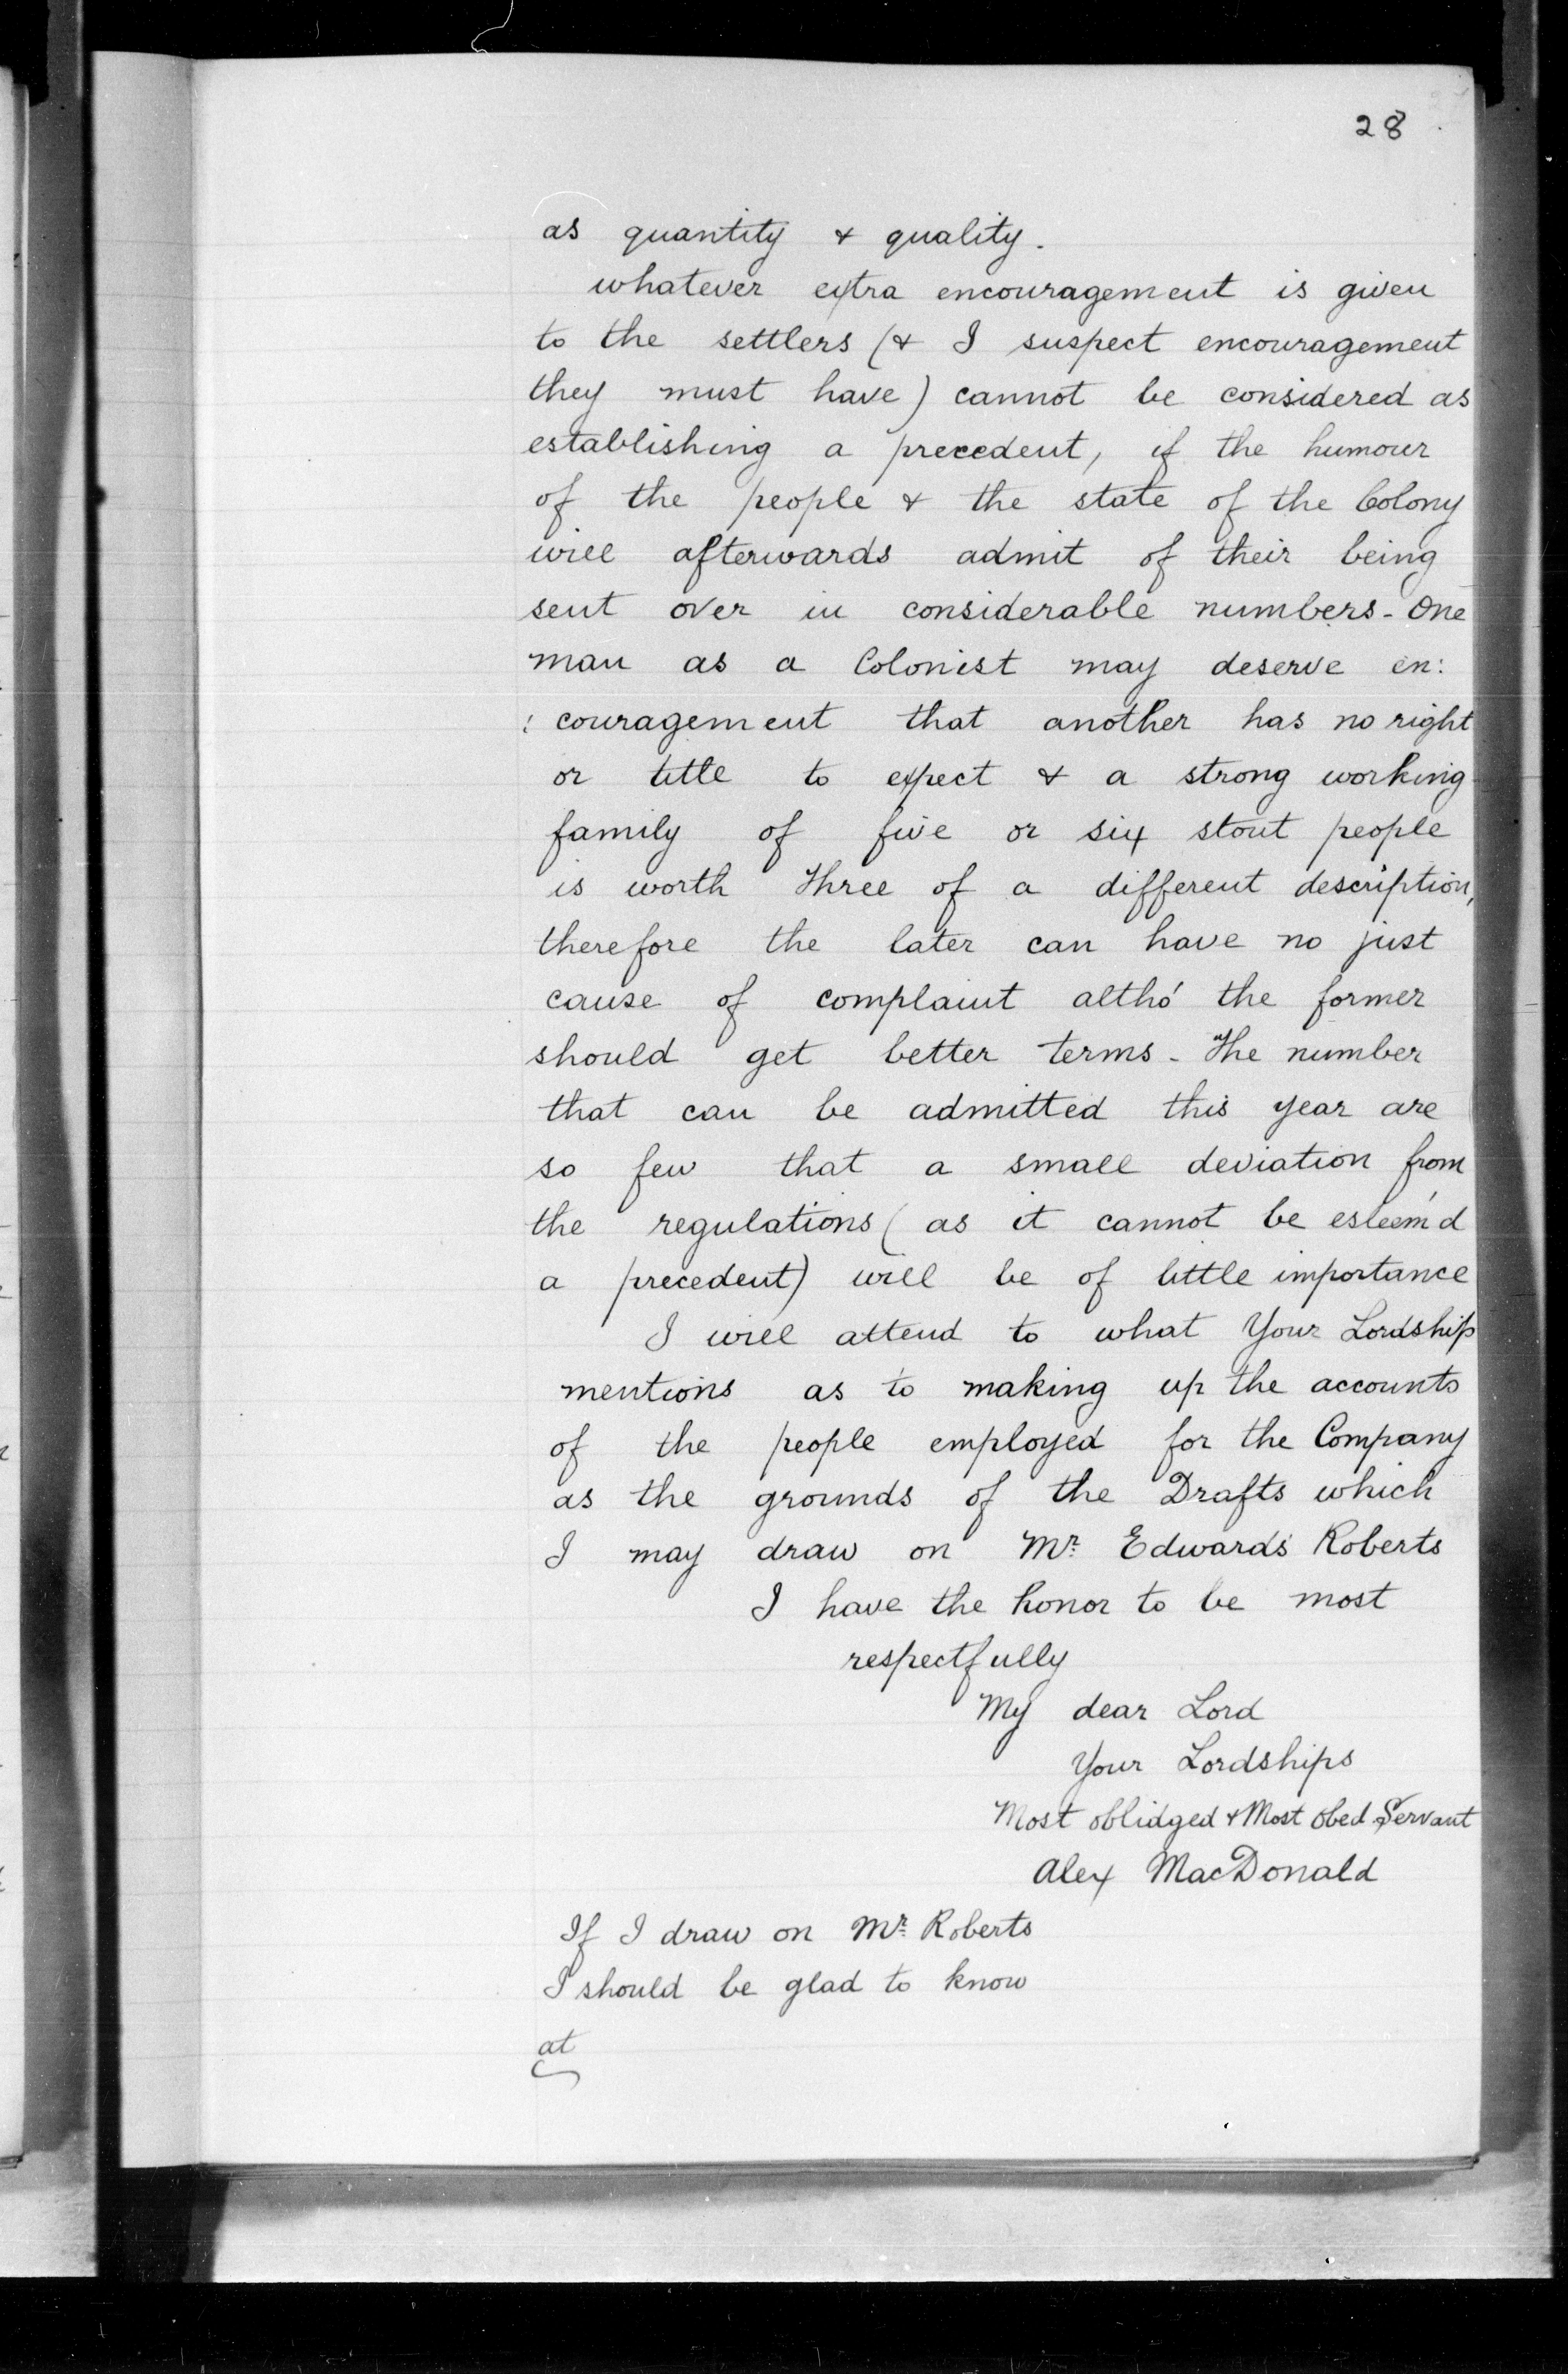 28
as quantity & quality.
whatever extra encouragement is given
to the settlers (& I suspect encouragement
they must have) cannot be considered as
establishing a precedent, if the humour
of the people & the state of the Colony
will afterwards admit of their being
sent over in considerable numbers - One
man as a Colonist may deserve en:
: couragement that another has no right
or title to expect & a strong working
family of five or six stout people
is worth three of a different description,
therefore the later can have no just
cause of complaint altho' the former
should get better terms - The number
that can be admitted this year are
so few that a small deviation from
the regulations (as it cannot be esteem'd
a precedent) will be of little importance
I will attend to what Your Lordship
mentions as to making up the accounts
of the people employed for the Company
as the grounds of the Drafts which
I may draw on Mr. Edwards Roberts
I have the honor to be most
respectfully
My dear Lord
Your Lordships
Most oblidged & Most Obed Servant
Alex MacDonald
If I draw on Mr. Roberts
I should be glad to know
at